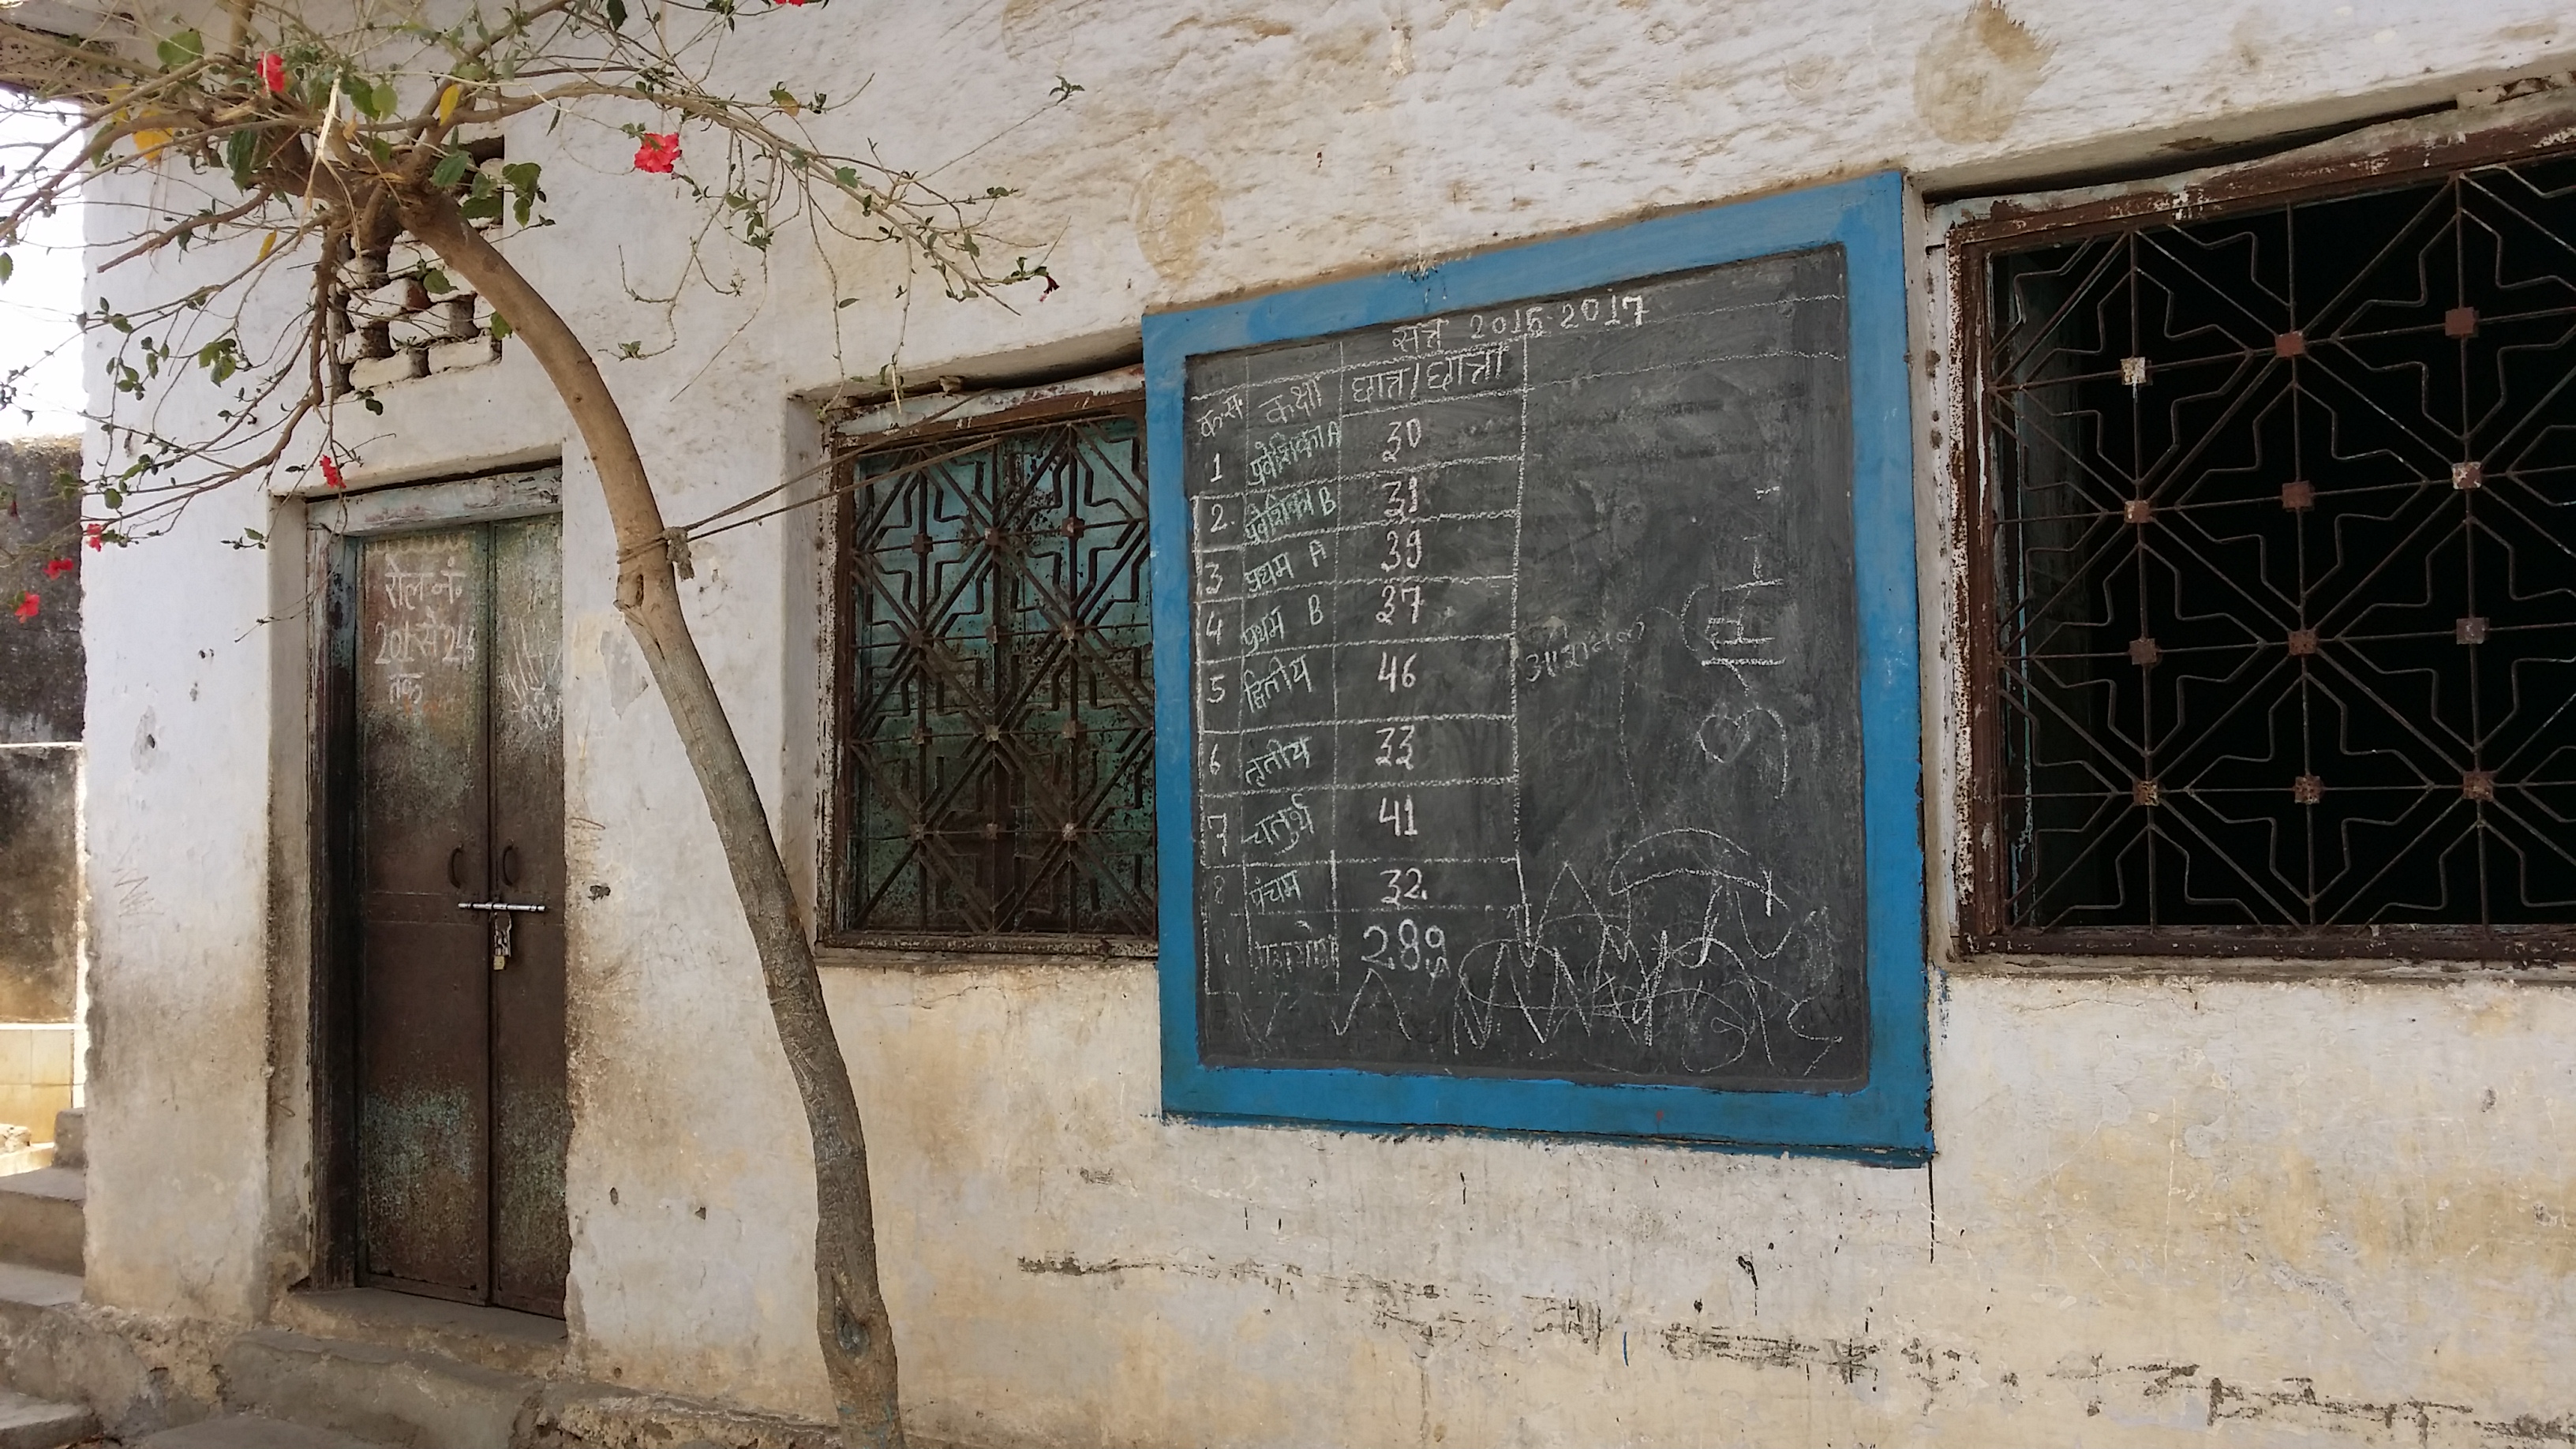 रोल नं॰
201 से 246
तक
सत्र 2016-2017
क्र.सं. कक्षा छात्र/छात्रा
1 प्रवेशिका A 30
2. प्रवेशिका B 31
3 प्रथम A 39
4 प्रथम B 37
5 द्वितीय 46
6 तृतीय 33
7 चतुर्थ 41
8 पंचम 32
289